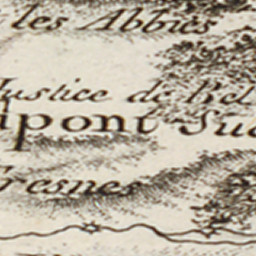 les Abbies
Justice de Bel
ipont Sud
Fresnes